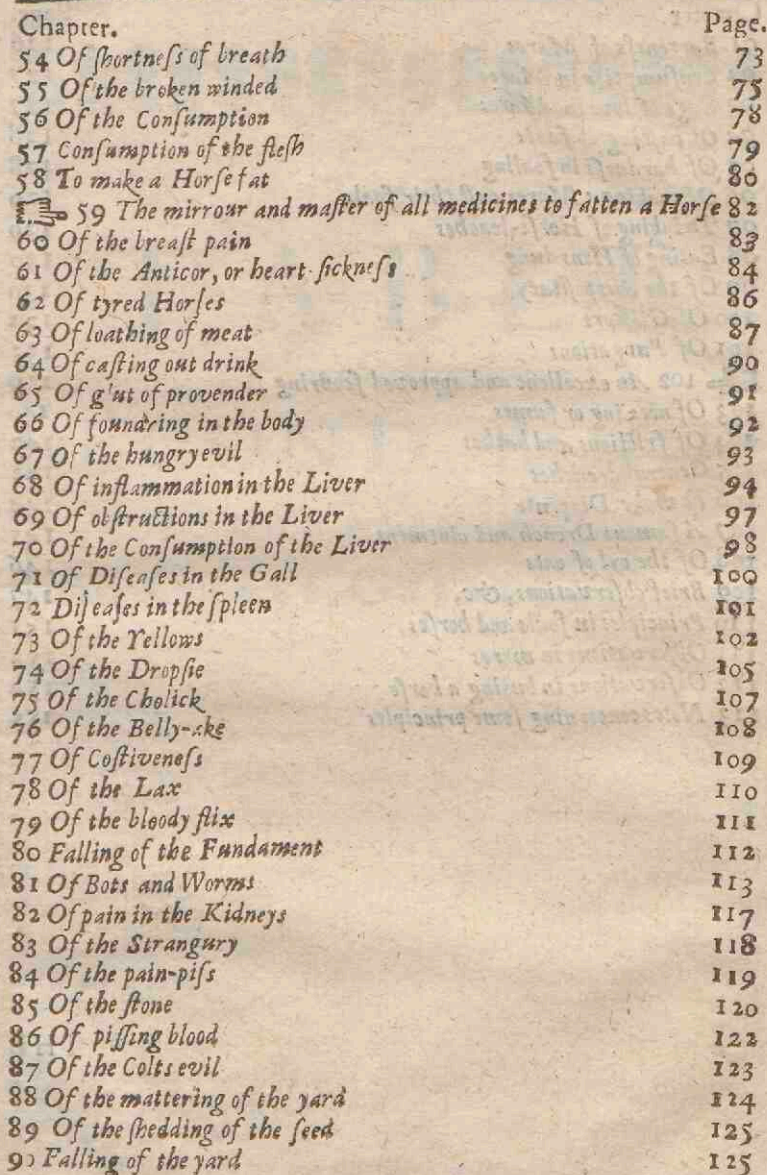 Chapter. Page.
54 Of ſhortneſs of breath 73
55 Of the broken winded 75
56 Of the Conſumption 78
57 Conſumption of the fleſh 79
58 To make a Horſe fat 80
59 The mirrour and maſter of all medicines to fatten a Horſe 82
60 Of the breaſt pain 83
61 Of the Anticor, or heart-ſickneſs 84
62 Of tyred Horſes 86
63 Of loathing of meat 87
64 Of caſting out drink 90
65 Of g'ut of provender 91
66 Of foundring in the body 92
67 Of the hungry evil 93
68 Of inflammation in the Liver 94
69 Of obſtructions in the Liver 97
70 Of the Conſumption of the Liver 98
71 Of Diſeaſes in the Gall 100
72 Diſeaſes in the ſpleen 101
73 Of the Yellows 102
74 Of the Dropſie 105
75 Of the Cholick 107
76 Of the Belly-ake 108
77 Of Coſtiveneſs 109
78 Of the Lax 110
79 Of the bloody flix 111
80 Falling of the Fundament 112
81 Of Bots and Worms 113
82 Of pain in the Kidneys 117
83 Of the Strangury 118
84 Of the pain-piſs 119
85 Of the ſtone 120
86 Of piſſing blood 122
87 Of the Colts evil 123
88 Of the mattering of the yard 124
89 Of the ſhedding of the ſeed 125
90 Falling of the yard 125